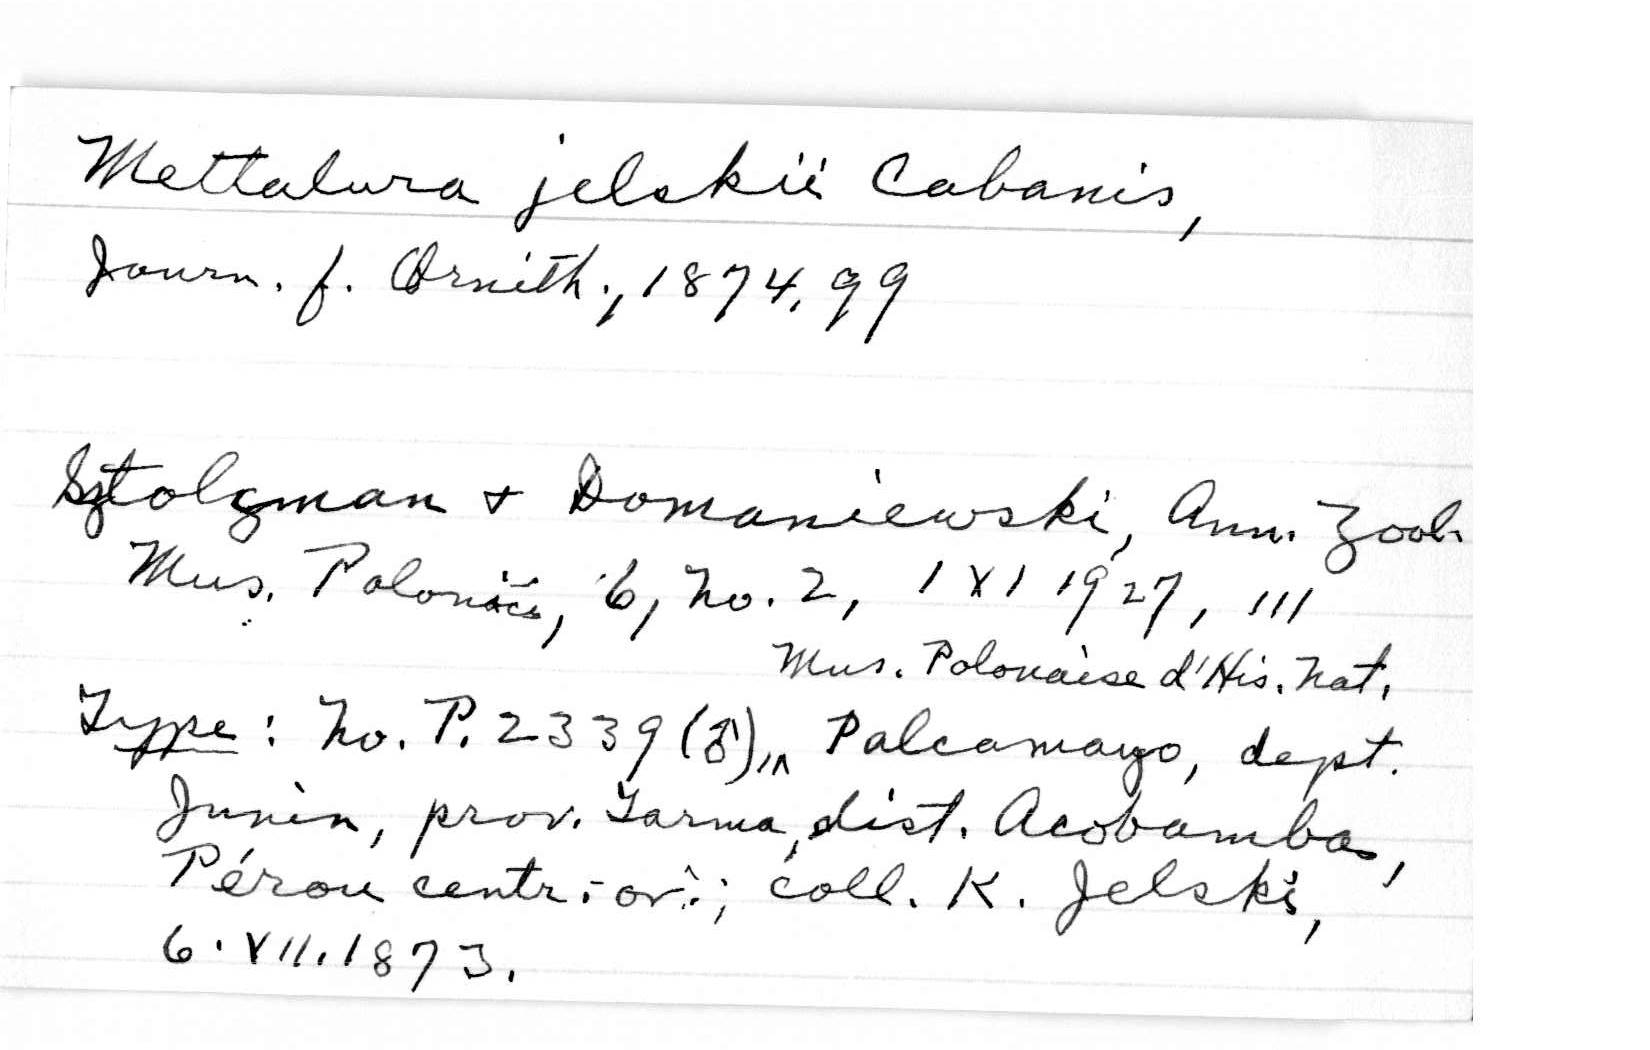 Mettalura jelskii Cabanis,
Journ. f. Ornith., 1874, 99
Sztolcman + Domaniewski, Ann. Zool.
Mus. Polonici, 6, No. 2, 1 XI 1927, 111
Mus. Polonaise d'His. Nat.
Type: No. P. 2339 (♂), Palcamayo, dept.
Junin, prov. Tarma, dist. Acobamba,
Pérou centr.-or.; coll. K. Jelski,
6.VII.1873.